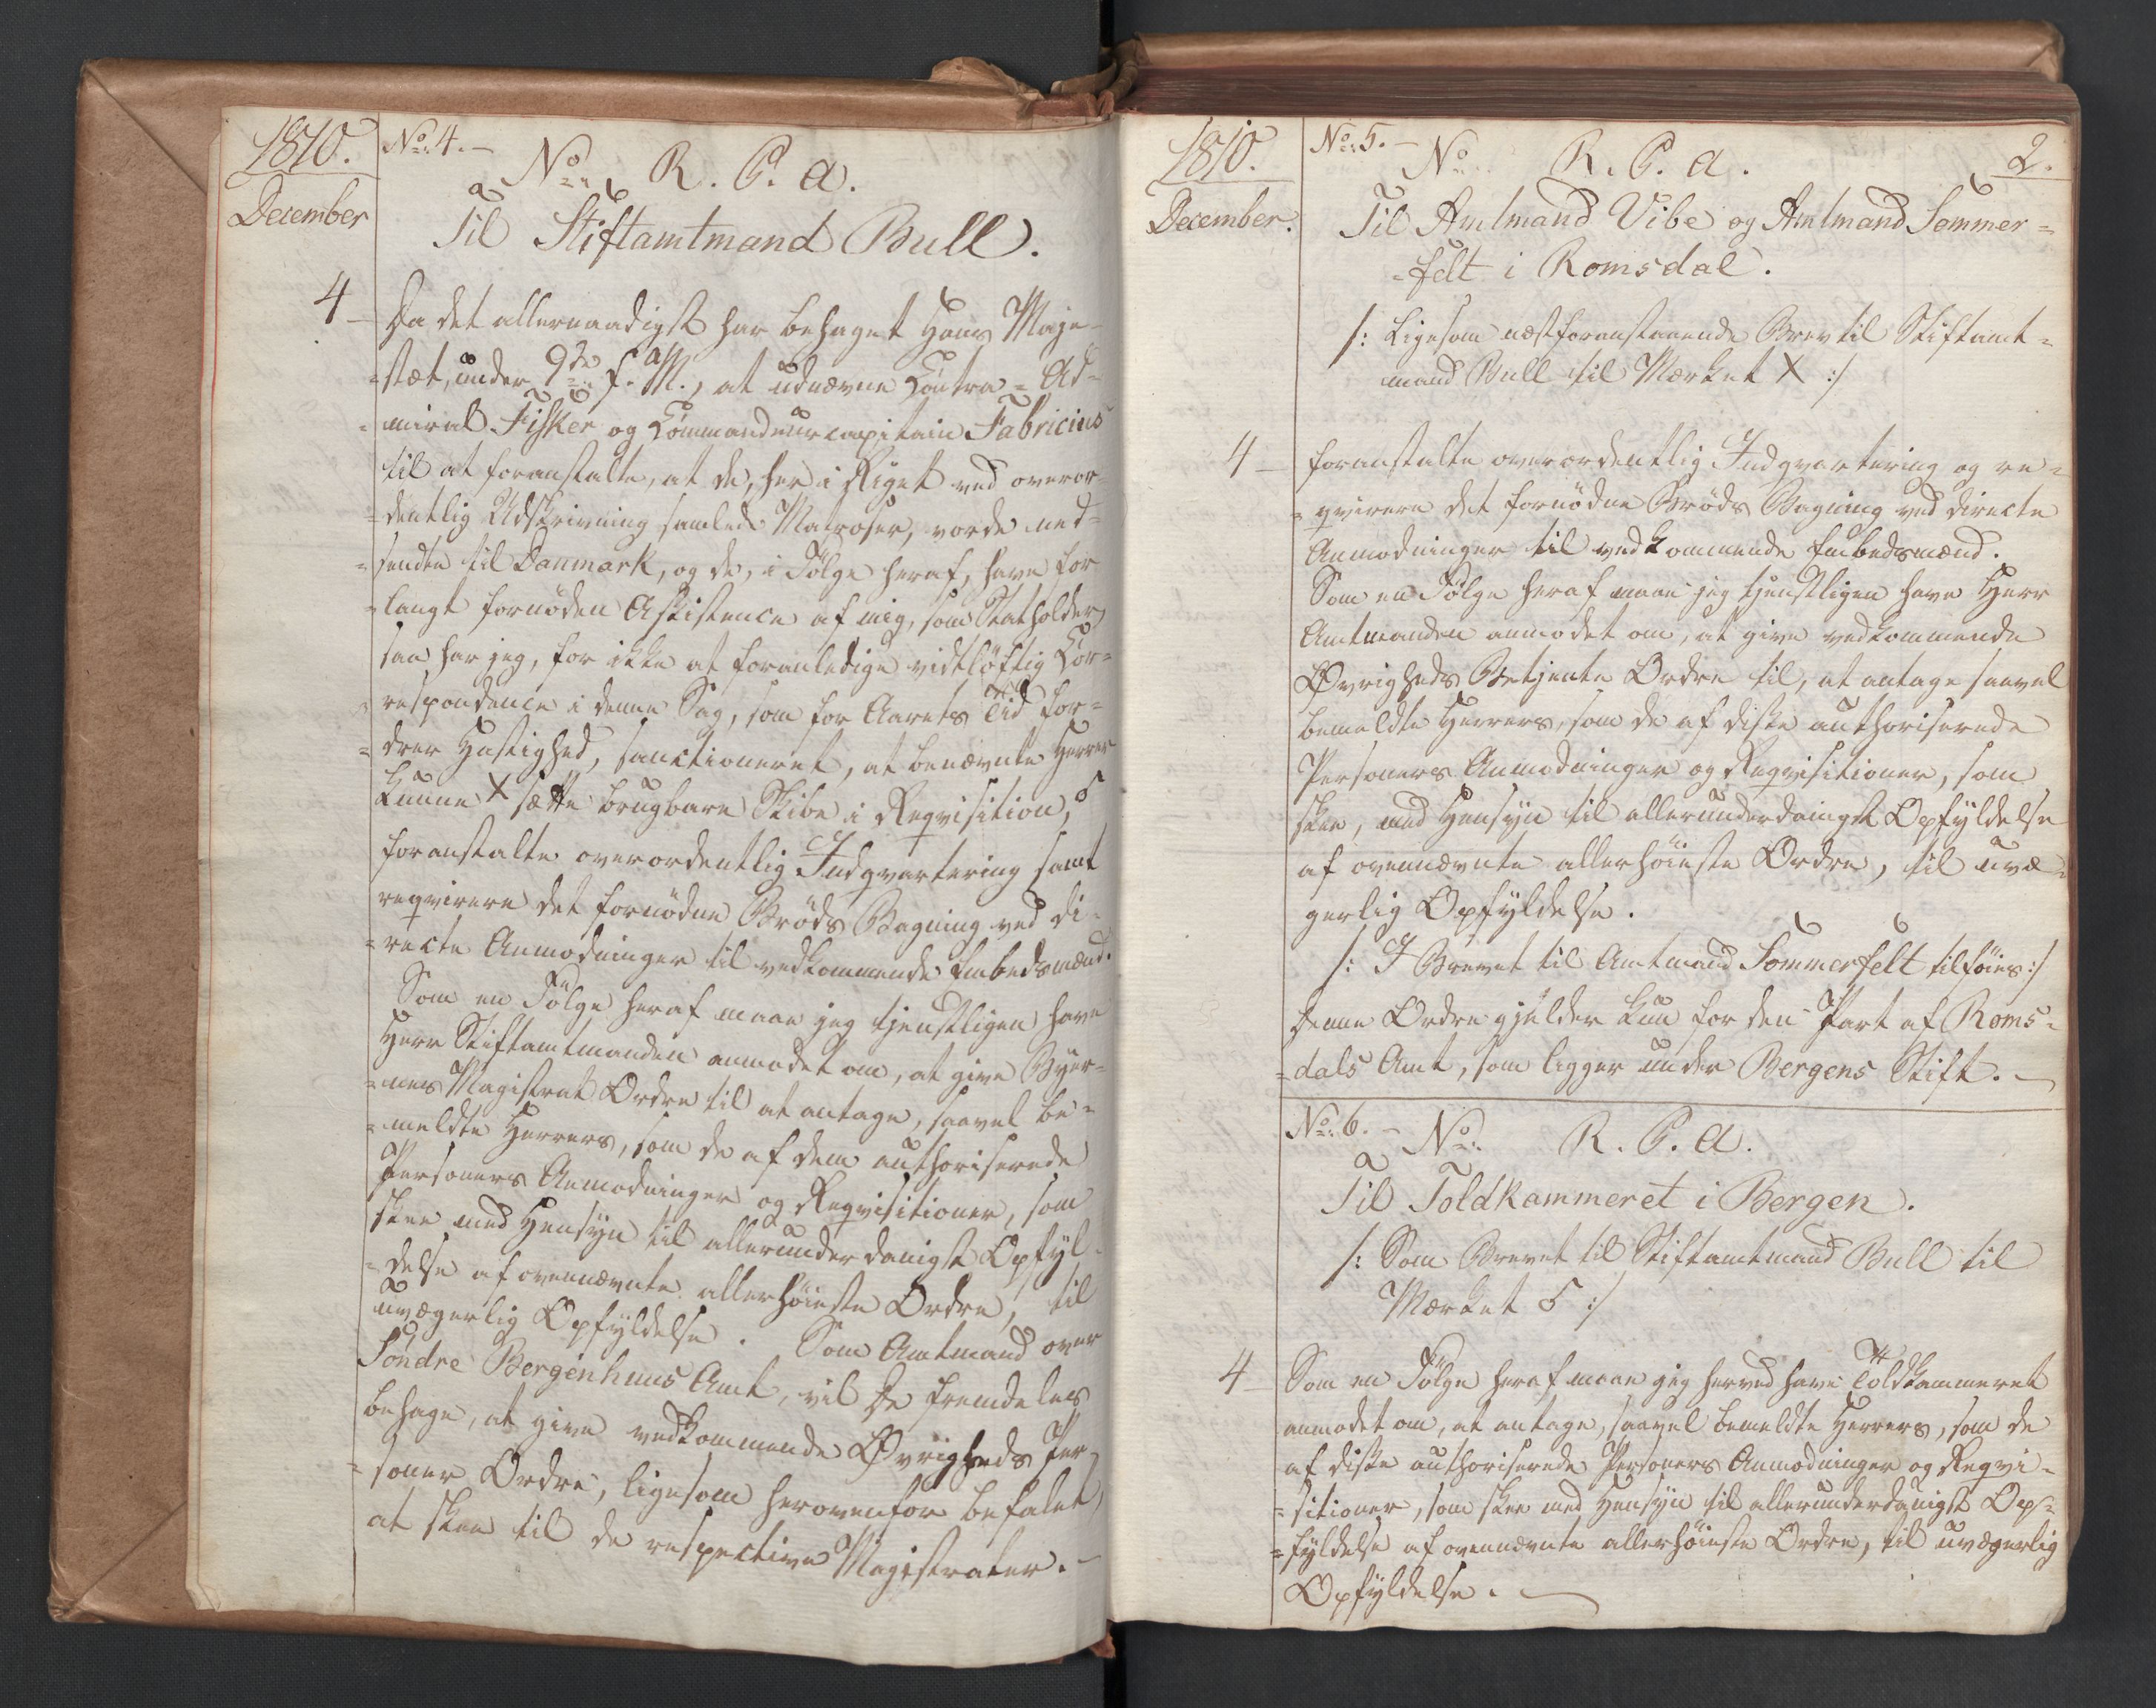 1810.
December
No. 4. -
No. R. C. A.
Til Stiftamtmand Bull.
4 - Da det allernaadigst har behaget Hans Maje-
=stæt, under 9de f. M., at udnævne Contra-Ad-
=miral Fisker og Commandeurcapitain Fabricius
til at foranstalte, at de, her i Riget ved overor-
=dentlig Udskrivning samlede Matroser, vorde ned-
=sendte til Danmark, og de, i Følge heraf, have for
=langt fornøden Assistence af mig, som Statholder,
saa har jeg, for ikke at foranledige vidtløftig Cor=
=respondence i denne Sag, som for Aarets Tid for=
=drer Hastighed, sanctioneret, at benævnte Herrer
kunne X sætte brugbare Skibe i Reqvisition, δ
foranstalte overordentlig Indqvartering samt
reqvirere det fornødne Brøds Bagning ved di-
=recte Anmodninger til vedkommende Embedsmænd.
Som en Følge heraf maae jeg tjenstligen have
Herr Stiftamtmanden anmodet om, at give Byer-
=nes Magistrat Ordre til at antage, saavel be=
=meldte Herrers, som de af dem authoriserede
Personers Anmodninger og Reqvisitioner, som
skee med Hensyn til allerunderdanigst Opfyl-
=delse af ovennævnte allerhøieste Ordre, til
uvægerlig Opfyldelse. Som Amtmand over
Søndre Bergenhuus Amt, vil De fremdeles
behage, at give vedkommende Øvrigheds Per
=soner Ordre, ligesom herovenfor befalet,
at skee til de respective Magistrater. -
1810.
December.
No. 5. -
2.
No. R. C. A.
Til Amtmand Vibe og Amtmand Sommer=
=felt i Romsdal.
/: Ligesom næstforanstaaende Brev til Stiftamt=
mand Bull til Mærket X :/
4 - foranstalte overordentlig Indqvartering og re=
=qvirere det fornødne Brøds Bagning ved directe
Anmodninger til vedkommende Embedsmænd.
Som en Følge heraf maae jeg tjenstligen have Herr
Amtmanden anmodet om, at give vedkommende
Øvrigheds Betjente Ordre til, at antage saavel
bemeldte Herrers, som de af disse authoriserede
Personers Anmodninger og Reqvisitioner, som
skee, med Hensyn til allerunderdanigst Opfyldelse
af ovennævnte allerhøieste Ordre, til uvæ=
gerlig Opfyldelse.
/: I Brevet til Amtmand Sommerfelt tilføies :/
Denne Ordre gjelder kun for den Part af Roms=
=dals Amt, som ligger under Bergens Stift. -
No. 6. -
No. R. C. A.
Til Toldkammeret i Bergen.
/: Som Brevet til Stiftamtmand Bull til
Mærket δ :/
4 - Som en Følge heraf maae jeg herved have Toldkammeret
anmodet om, at antage, saavel bemeldte Herrers, som de
af disse authoriserede Personers Anmodninger og Reqvi=
=sitioner, som skee med Hensyn til allerunderdanigst Op=
=fyldelse af ovennævnte allerhøieste Ordre, til uvægerlig
Opfyldelse. -